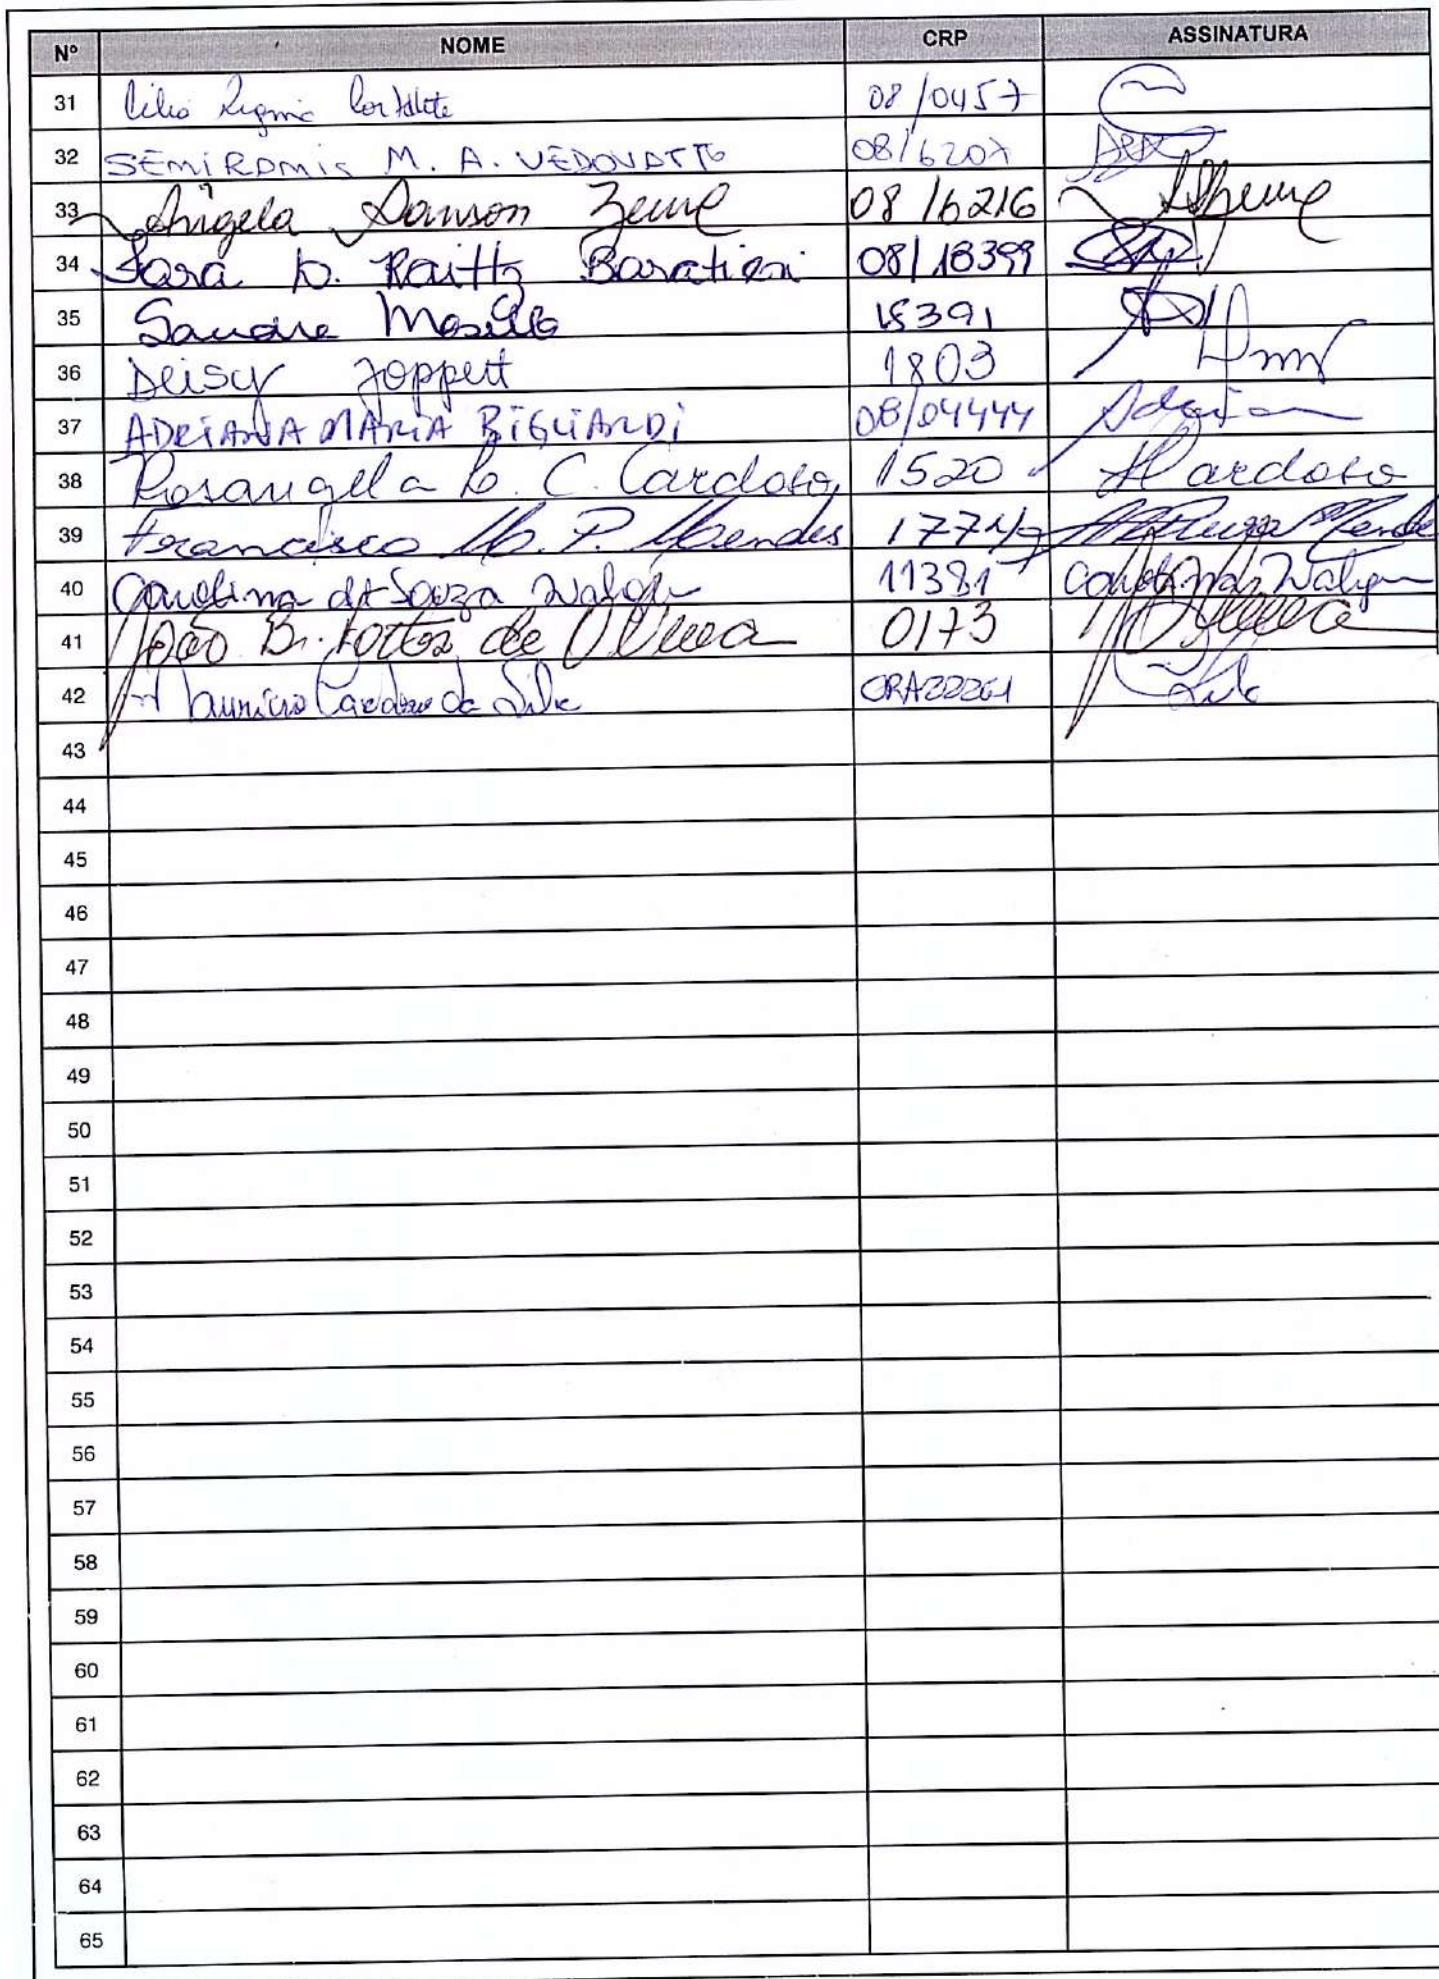 Nº NOME CRP ASSINATURA
31 Célia Regina Cortellete 08/0457
32 SEMIRAMIS M. A. VEDOVATTO 08/6207
33 Angela Dawson Zeme 08/6216
34 Sara D. Raittz Baratieri 08/18399
35 15391
36 Deisy Joppert 1803
37 ADRIANA MARIA BIGLIARDI 08/04444 Adriana
38 Rosangela L. C. Cardoso 1520 Cardoso
39 Francisco M. P. Mendes Mendes
40 Carolina de Souza Walger 11381 Carolina Walger
41 João B. Fortes de Oliveira 0173 Oliveira
42 Mauricio Cardoso da Silva CRA22261 Silva
43
44
45
46
47
48
49
50
51
52
53
54
55
56
57
58
59
60
61
62
63
64
65